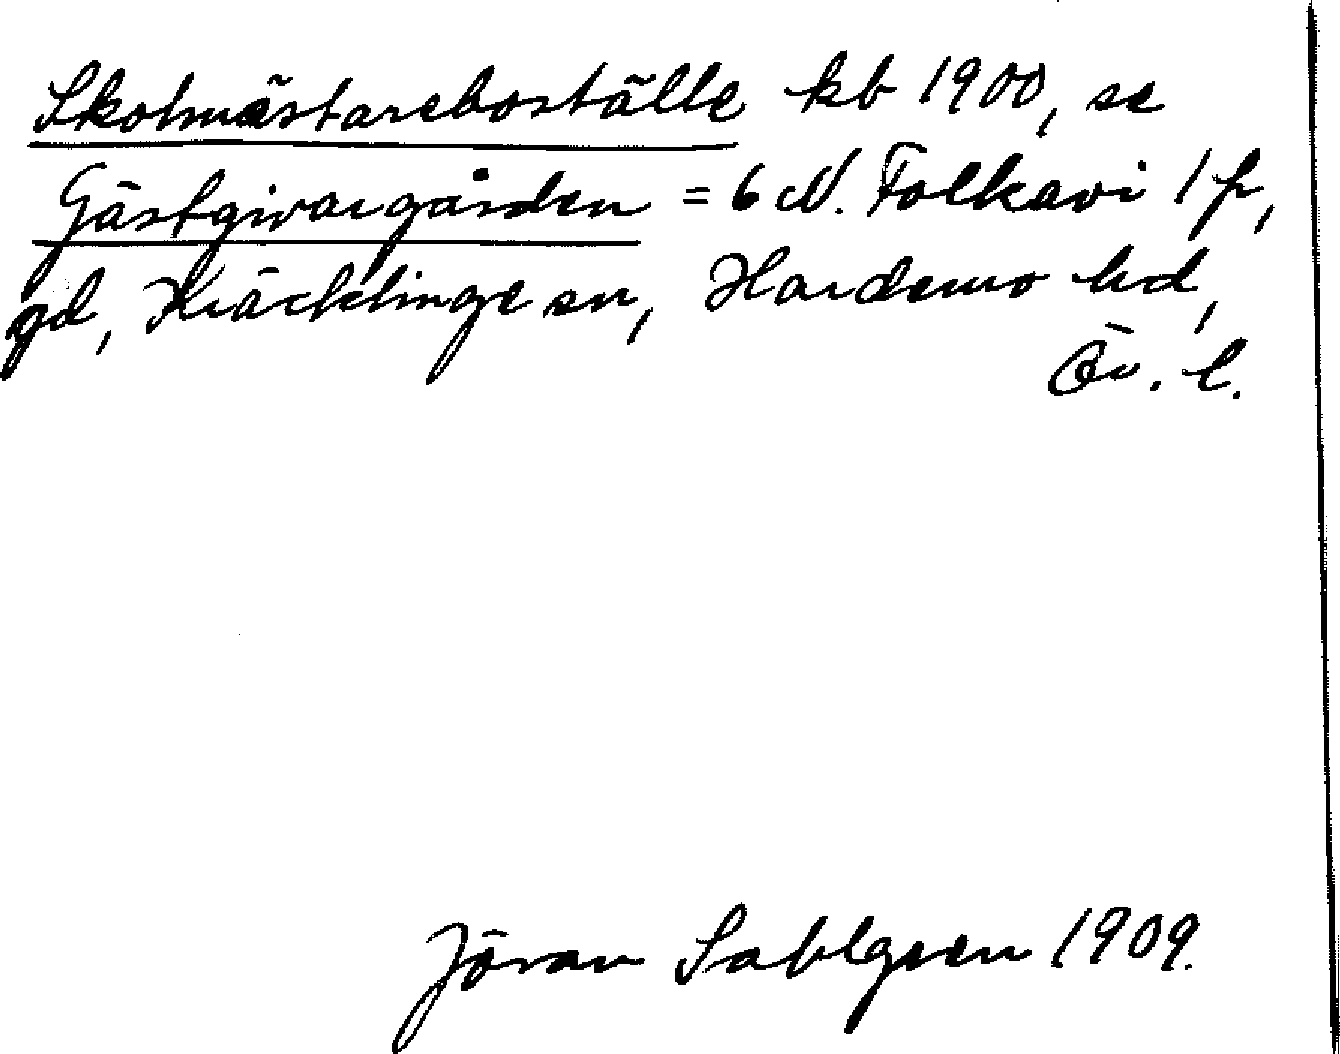 Skolmästareboställe kb 1900, se
Gästgivargården = 6 N. Folkavi 1 fr,
gd, Kräcklinge sn, Hardemo hd,
Ör. l.
Jöran Sahlgren 1909.